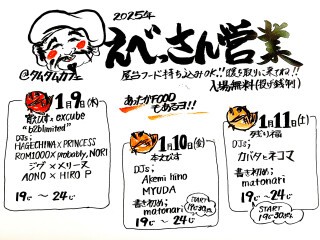 2025年
えべっさん営業
@タムタムカフェ
屋台フード持ち込みOK!!暖を取りに来てね!!
入場無料(投げ銭制)
1月9日(木)
excube
"b2blimited"
DJs;
HAGECHINA×PRINCESS
ROM1000×probably, NORI
ジプ×メリース
AONO×HIRO P
19じ〜24じ
あったかFOOD
もあるヨ!!
1月10日(金)
本えびす
DJs;
Akemi hino
MYUDA
書き初め;
matonari
19じ30ぷん
19じ〜24じ
1月11日(土)
残り福
DJs;
カバタ&ネコマ
書き初め;
matonari
19じ〜24じ
START
19じ30ぷん